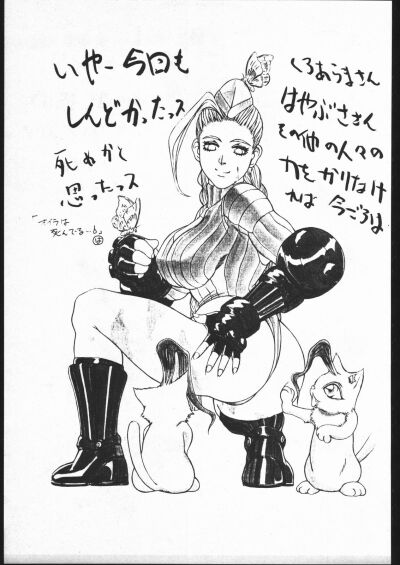 いやー今回も
しんどかったっス
死ぬかと
思ったっス
「オイラは
死んでる…6」
くろあうまさん
はやぶささん
その他の人々の
力をかりなけ
れば今ごろは